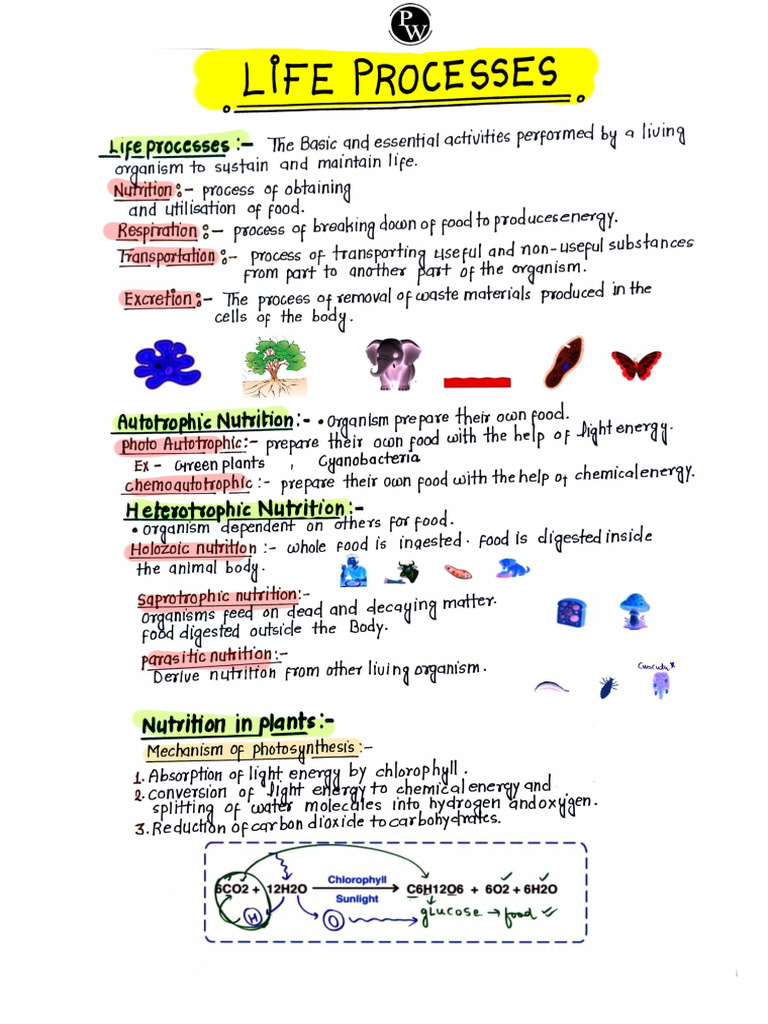 PW
LIFE PROCESSES
Life processes :- The Basic and essential activities performed by a living
organism to sustain and maintain life.
Nutrition :- process of obtaining
and utilisation of food.
Respiration :- process of breaking down of food to produces energy.
Transportation :- process of transporting useful and non-useful substances
from part to another part of the organism.
Excretion :- The process of removal of waste materials produced in the
cells of the body.
Autotrophic Nutrition :- • Organism prepare their own food.
photo Autotrophic :- prepare their own food with the help of light energy.
Ex - Green plants , Cyanobacteria
chemoautotrophic :- prepare their own food with the help of chemical energy.
Heterotrophic Nutrition :-
• Organism dependent on others for food.
Holozoic nutrition :- whole food is ingested. food is digested inside
the animal body.
saprotrophic nutrition :-
Organisms feed on dead and decaying matter.
food digested outside the Body.
parasitic nutrition :-
Derive nutrition from other living organism.
Cuscuta
Nutrition in plants :-
Mechanism of photosynthesis :-
1. Absorption of light energy by chlorophyll.
2. conversion of light energy to chemical energy and
splitting of water molecules into hydrogen and oxygen.
3. Reduction of carbon dioxide to carbohydrates.
Chlorophyll
6CO2 + 12H2O → C6H12O6 + 6O2 + 6H2O
Sunlight
H O glucose → food